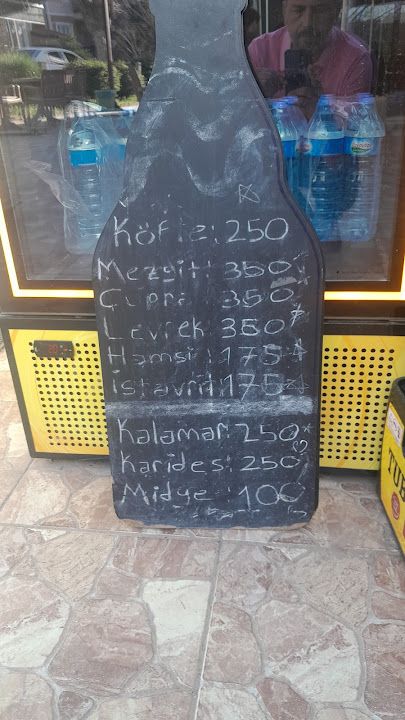 Köfte: 250
Mezgit: 350
Çupra: 350
Levrek: 350
Hamsi: 175
İstavrit: 175
Kalamar: 250
Karides: 250
Midye: 100
TUB